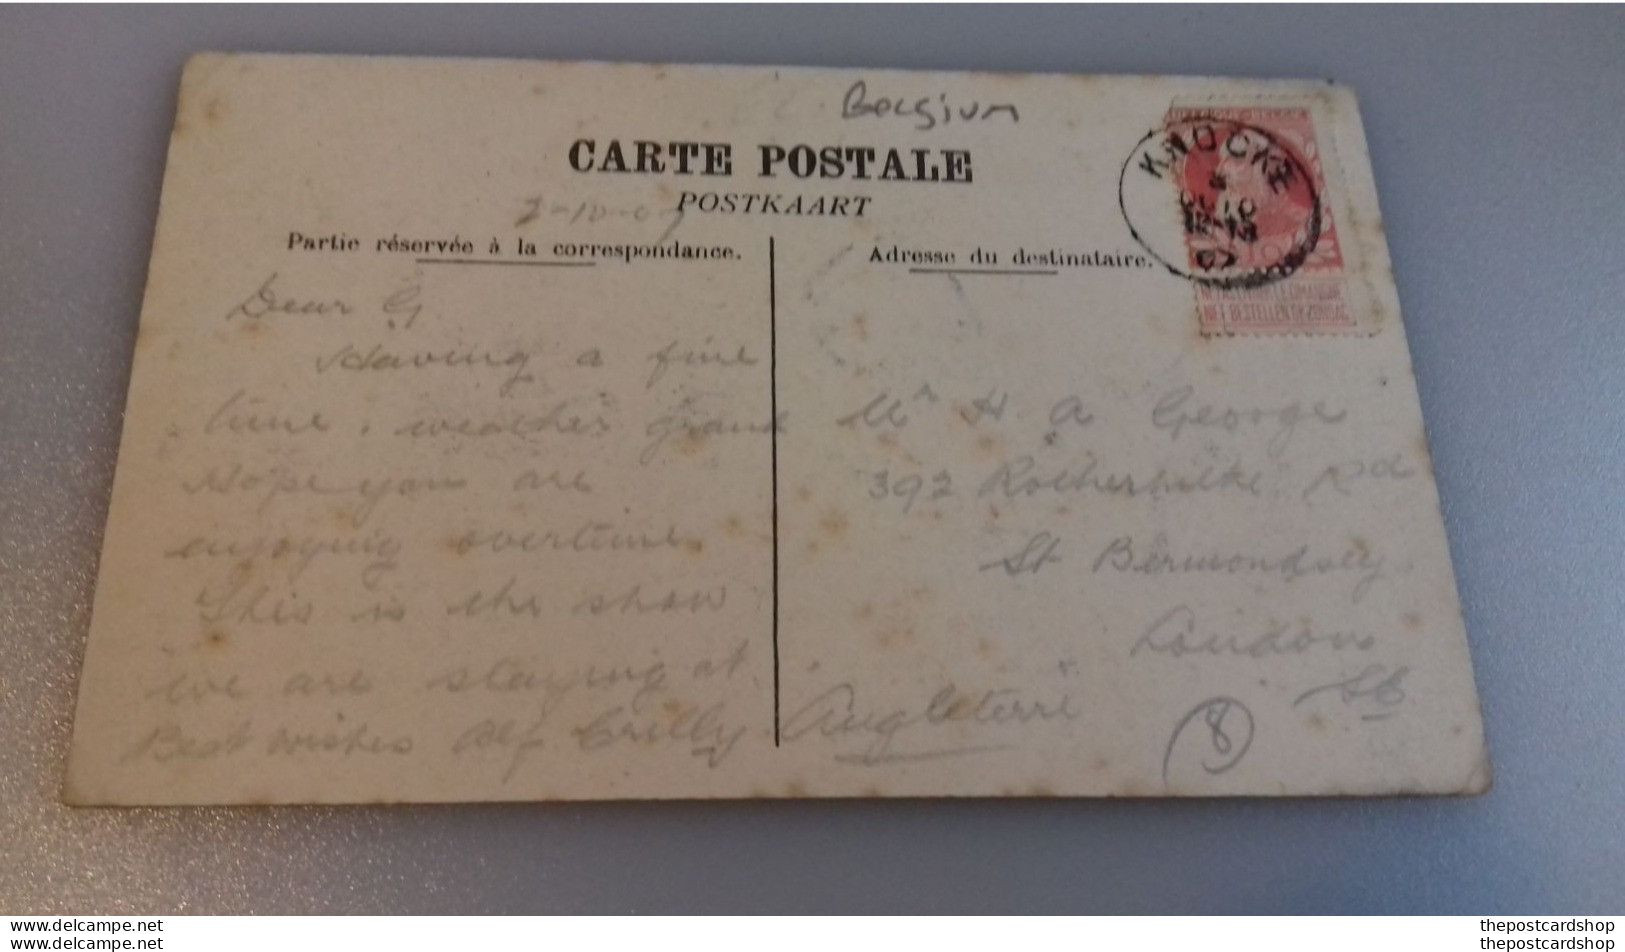 Belgium
CARTE POSTALE
POSTKAART
2-10-07
Partie réservée à la correspondance.
Adresse du destinataire.
KNOCKE
10
07
NE PAS LIVRER LE DIMANCHE
NIET BESTELLEN OP ZONDAG
Dear G
Having a fine
time. weather grand
Hope you are
enjoying overtime.
This is the show
we are staying at.
Best wishes Alf Crilly
Mr H A George
392 Rotherhithe Rd
St Bermondsey
London
SE
Angleterre
8
thepostcardshop
thepostcardshop